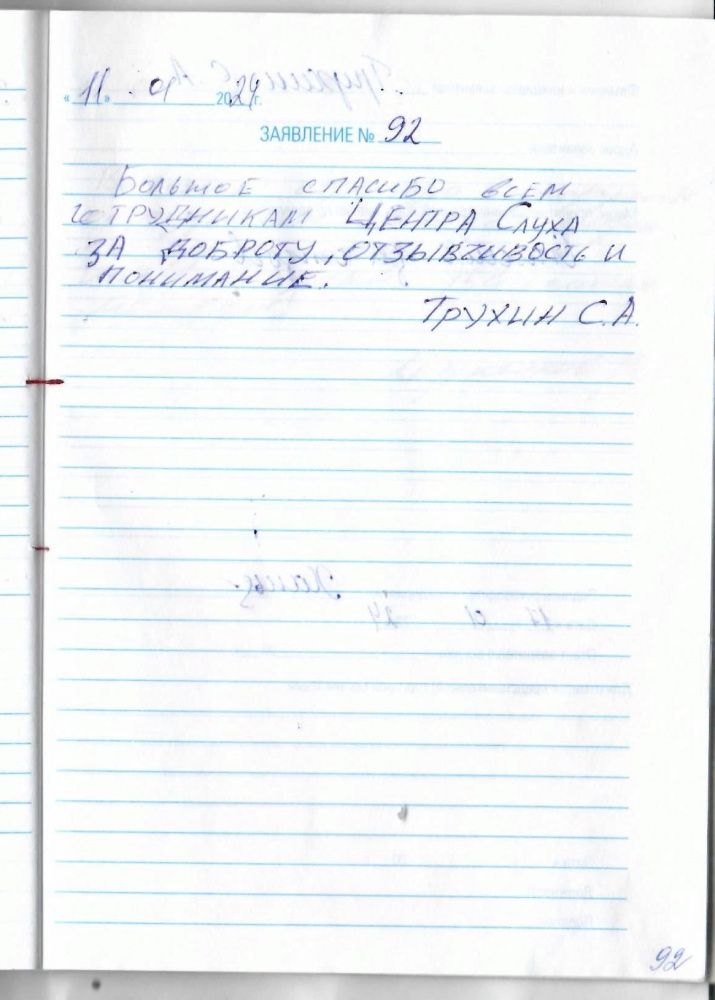 «11» 01 2024г.
ЗАЯВЛЕНИЕ № 92
Большое спасибо всем
сотрудникам Центра Слуха
за доброту, отзывчивость и
понимание.
Трухин С.А.
92